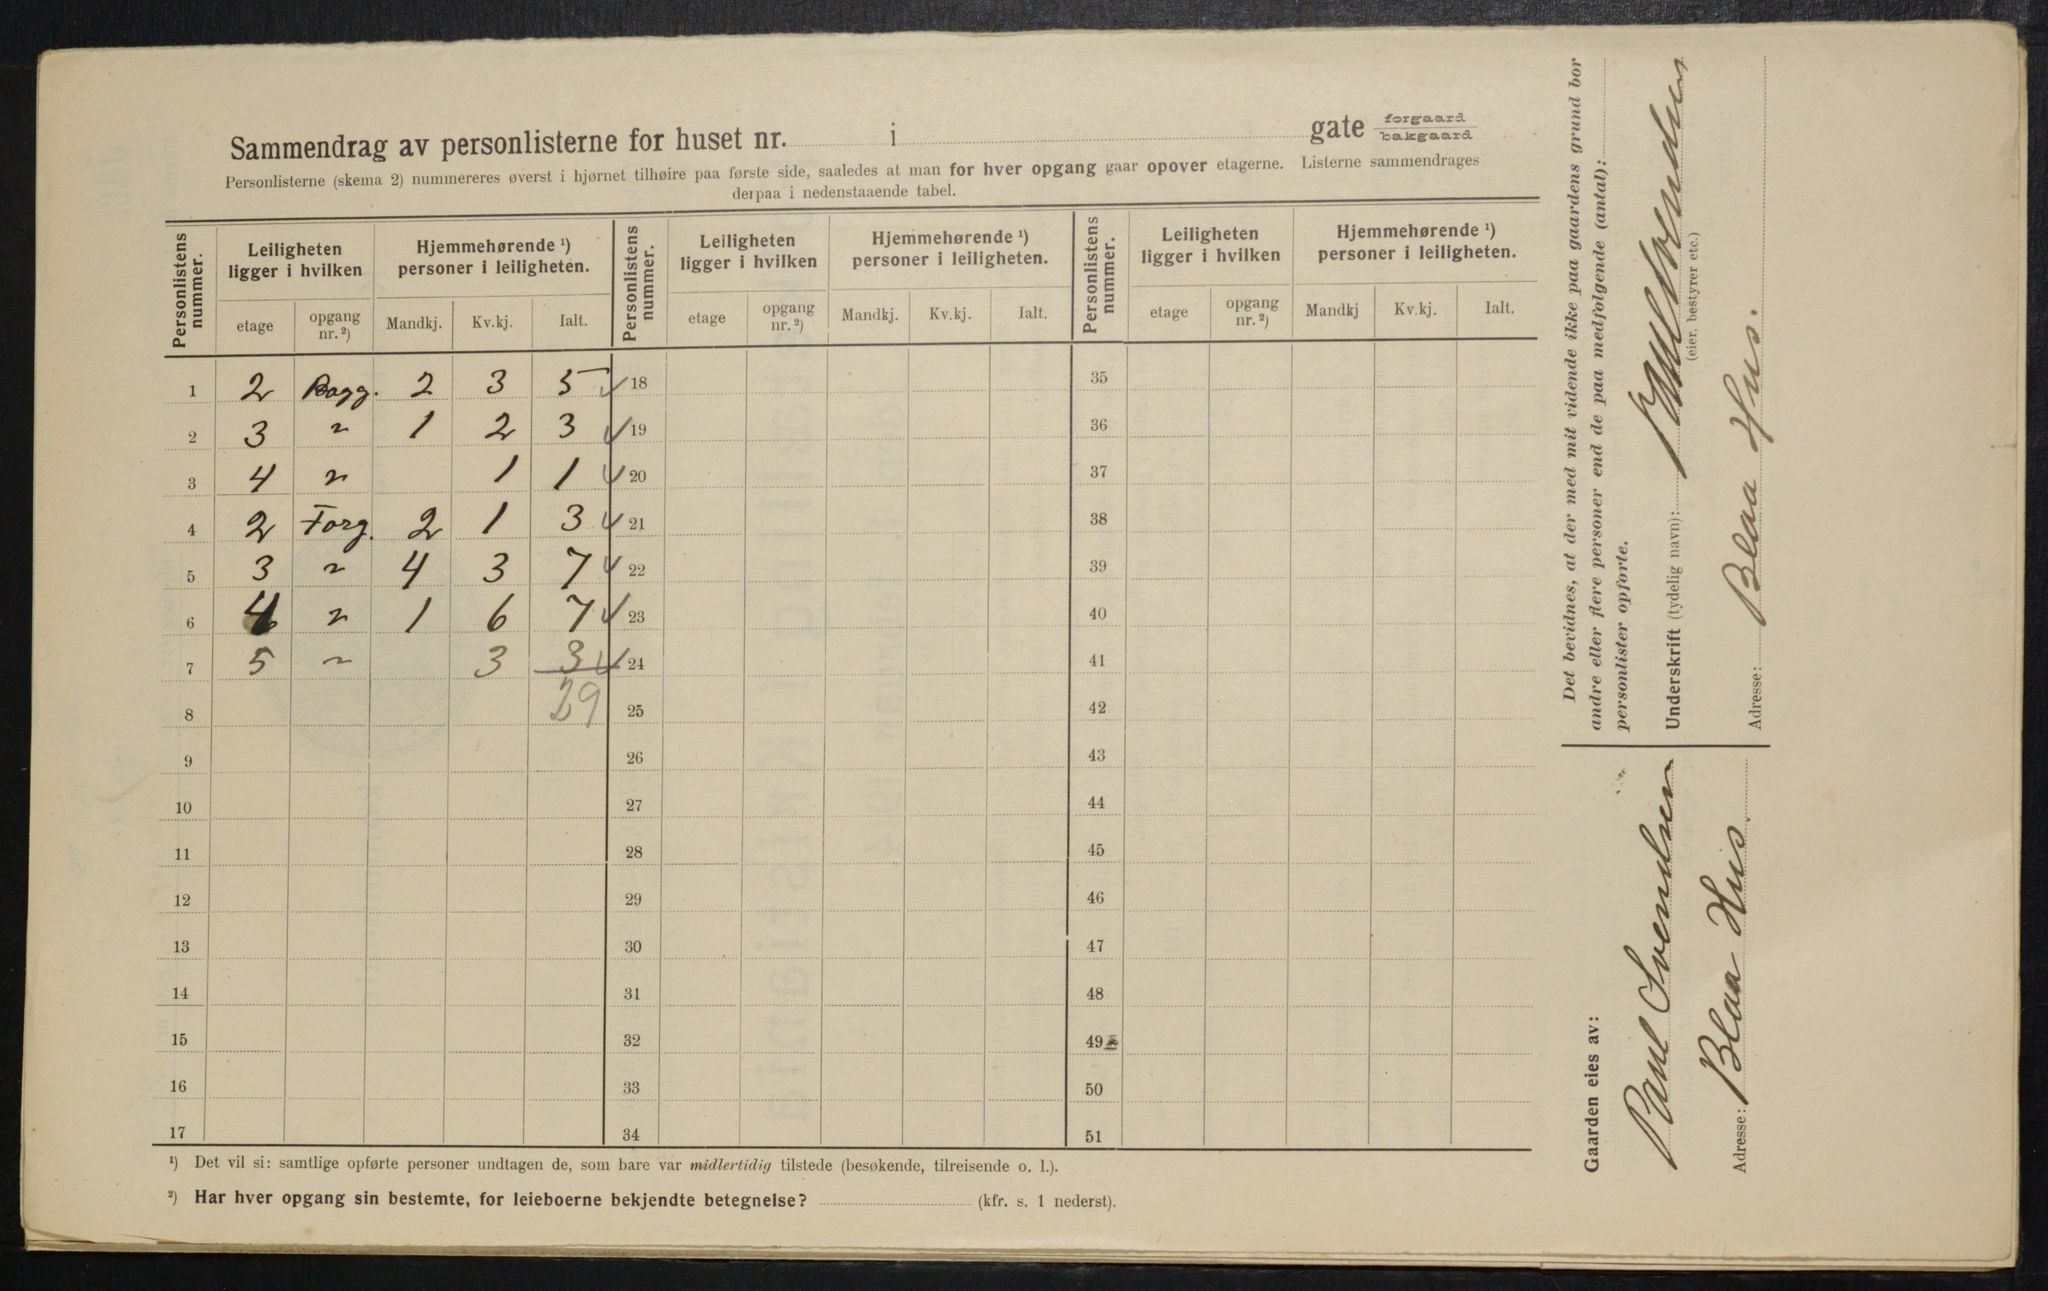 Sammendrag av personlisterne for huset nr. i gate forgaard bakgaard
Personlisterne (skema 2) nummereres øverst i hjørnet tilhøire paa første side, saaledes at man for hver opgang gaar opover etagerne. Listerne sammendrages
derpaa i nedenstaaende tabel.
Personlistens nummer. Leiligheten ligger i hvilken Hjemmehørende ¹) personer i leiligheten. Personlistens nummer. Leiligheten ligger i hvilken Hjemmehørende ¹) personer i leiligheten. Personlistens nummer. Leiligheten ligger i hvilken Hjemmehørende ¹) personer i leiligheten.
etage opgang nr. ²) Mandkj. Kv.kj. Ialt. etage opgang nr. ²) Mandkj. Kv.kj. Ialt. etage opgang nr. ²) Mandkj Kv.kj. Ialt.
1 2 Bagg. 2 3 5 ✓ 18 35
2 3 " 1 2 3 ✓ 19 36
3 4 " 1 1 ✓ 20 37
4 2 Forg. 2 1 3 ✓ 21 38
5 3 " 4 3 7 ✓ 22 39
6 4 " 1 6 7 ✓ 23 40
7 5 " 3 3 ✓ 24 41
8 29 25 42
9 26 43
10 27 44
11 28 45
12 29 46
13 30 47
14 31 48
15 32 49
16 33 50
17 34 51
¹) Det vil si: samtlige opførte personer undtagen de, som bare var midlertidig tilstede (besøkende, tilreisende o. l.).
²) Har hver opgang sin bestemte, for leieboerne bekjendte betegnelse? (kfr. s. 1 nederst).
Det bevidnes, at der med mit vidende ikke paa gaardens grund bor
andre eller flere personer end de paa medfølgende (antal):
personlister opførte.
Underskrift (tydelig navn): Paul Svendsen
(eier, bestyrer etc.)
Adresse: Blaa Hus.
Gaarden eies av:
Paul Svendsen
Adresse: Blaa Hus